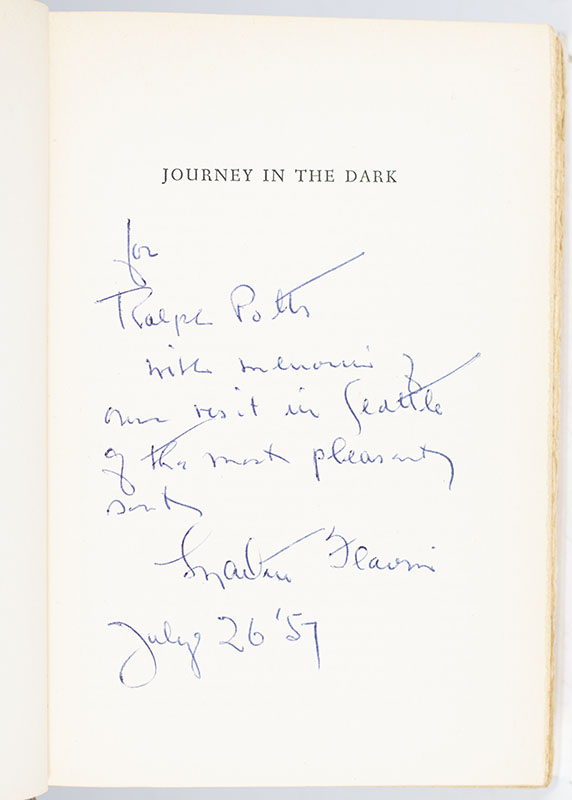 JOURNEY IN THE DARK
for
Ralph Potts
with memories of
our visit in Seattle
of the most pleasant
sort
Martin Flavin
July 26 '57